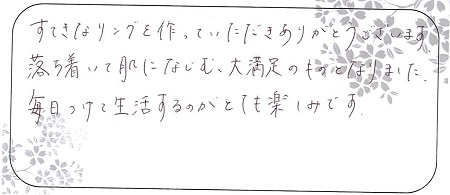 すてきなリングを作っていただきありがとうございます。
落ち着いて肌になじむ、大満足のものとなりました。
毎日つけて生活するのがとても楽しみです。